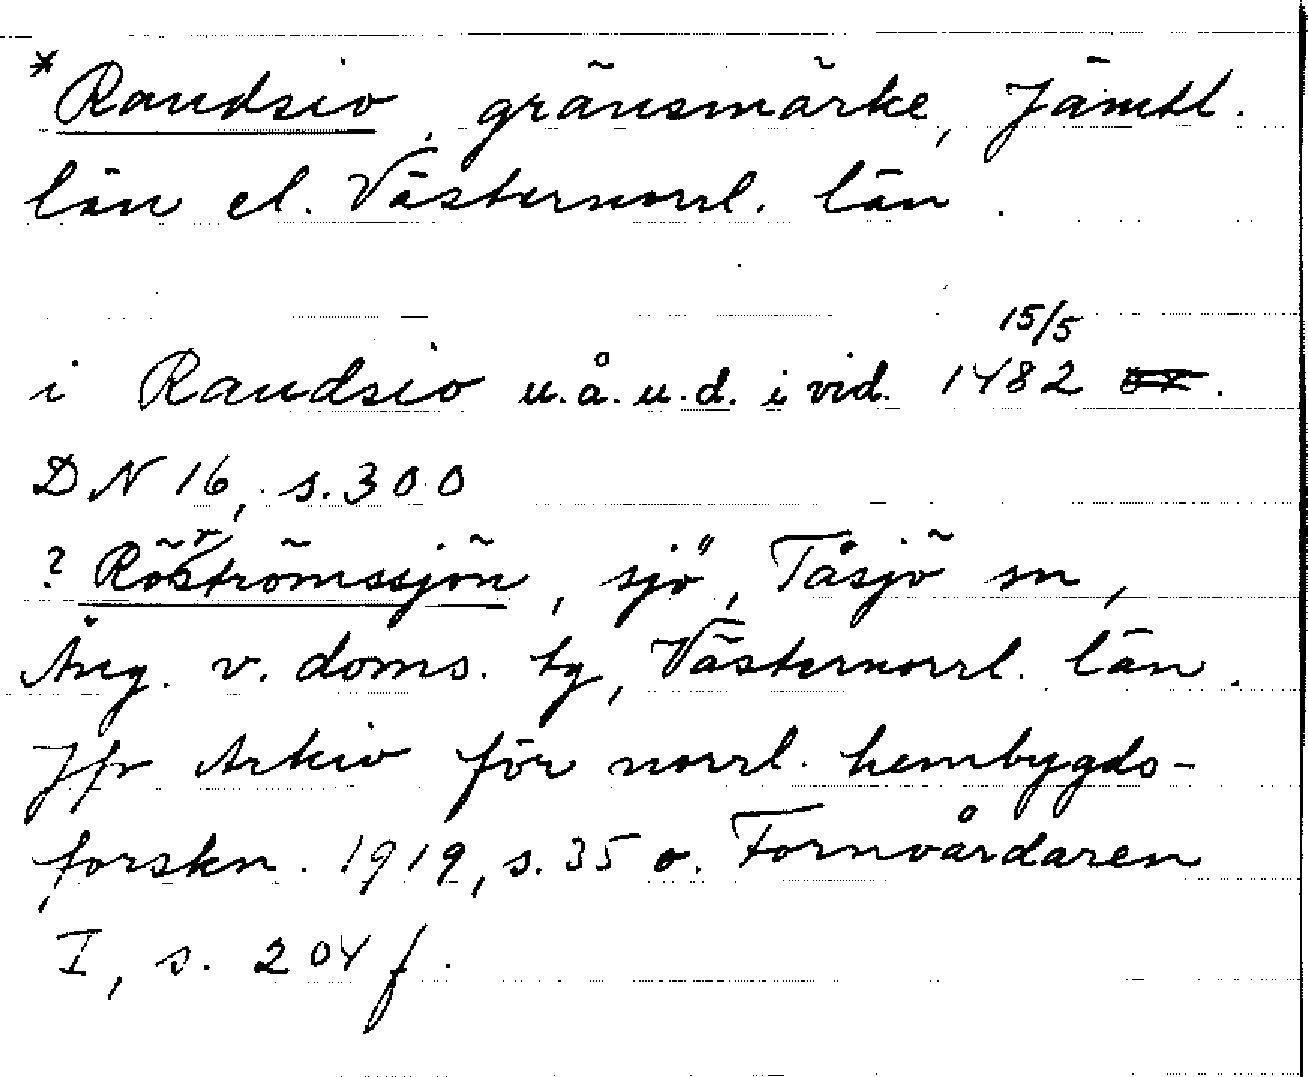 *Raudsio, gränsmärke, Jämtl.
län el. Västernorrl. län.
i Raudsio u.å.u.d. i vid. 15/5 1482 or.
DN 16, s. 300
? Rörströmssjön, sjö, Tåsjö sn,
Ång. v. doms. tg, Västernorrl. län.
Jfr Arkiv för norrl. hembygds-
forskn. 1919, s. 35 o. Fornvårdaren
I, s. 204 f.